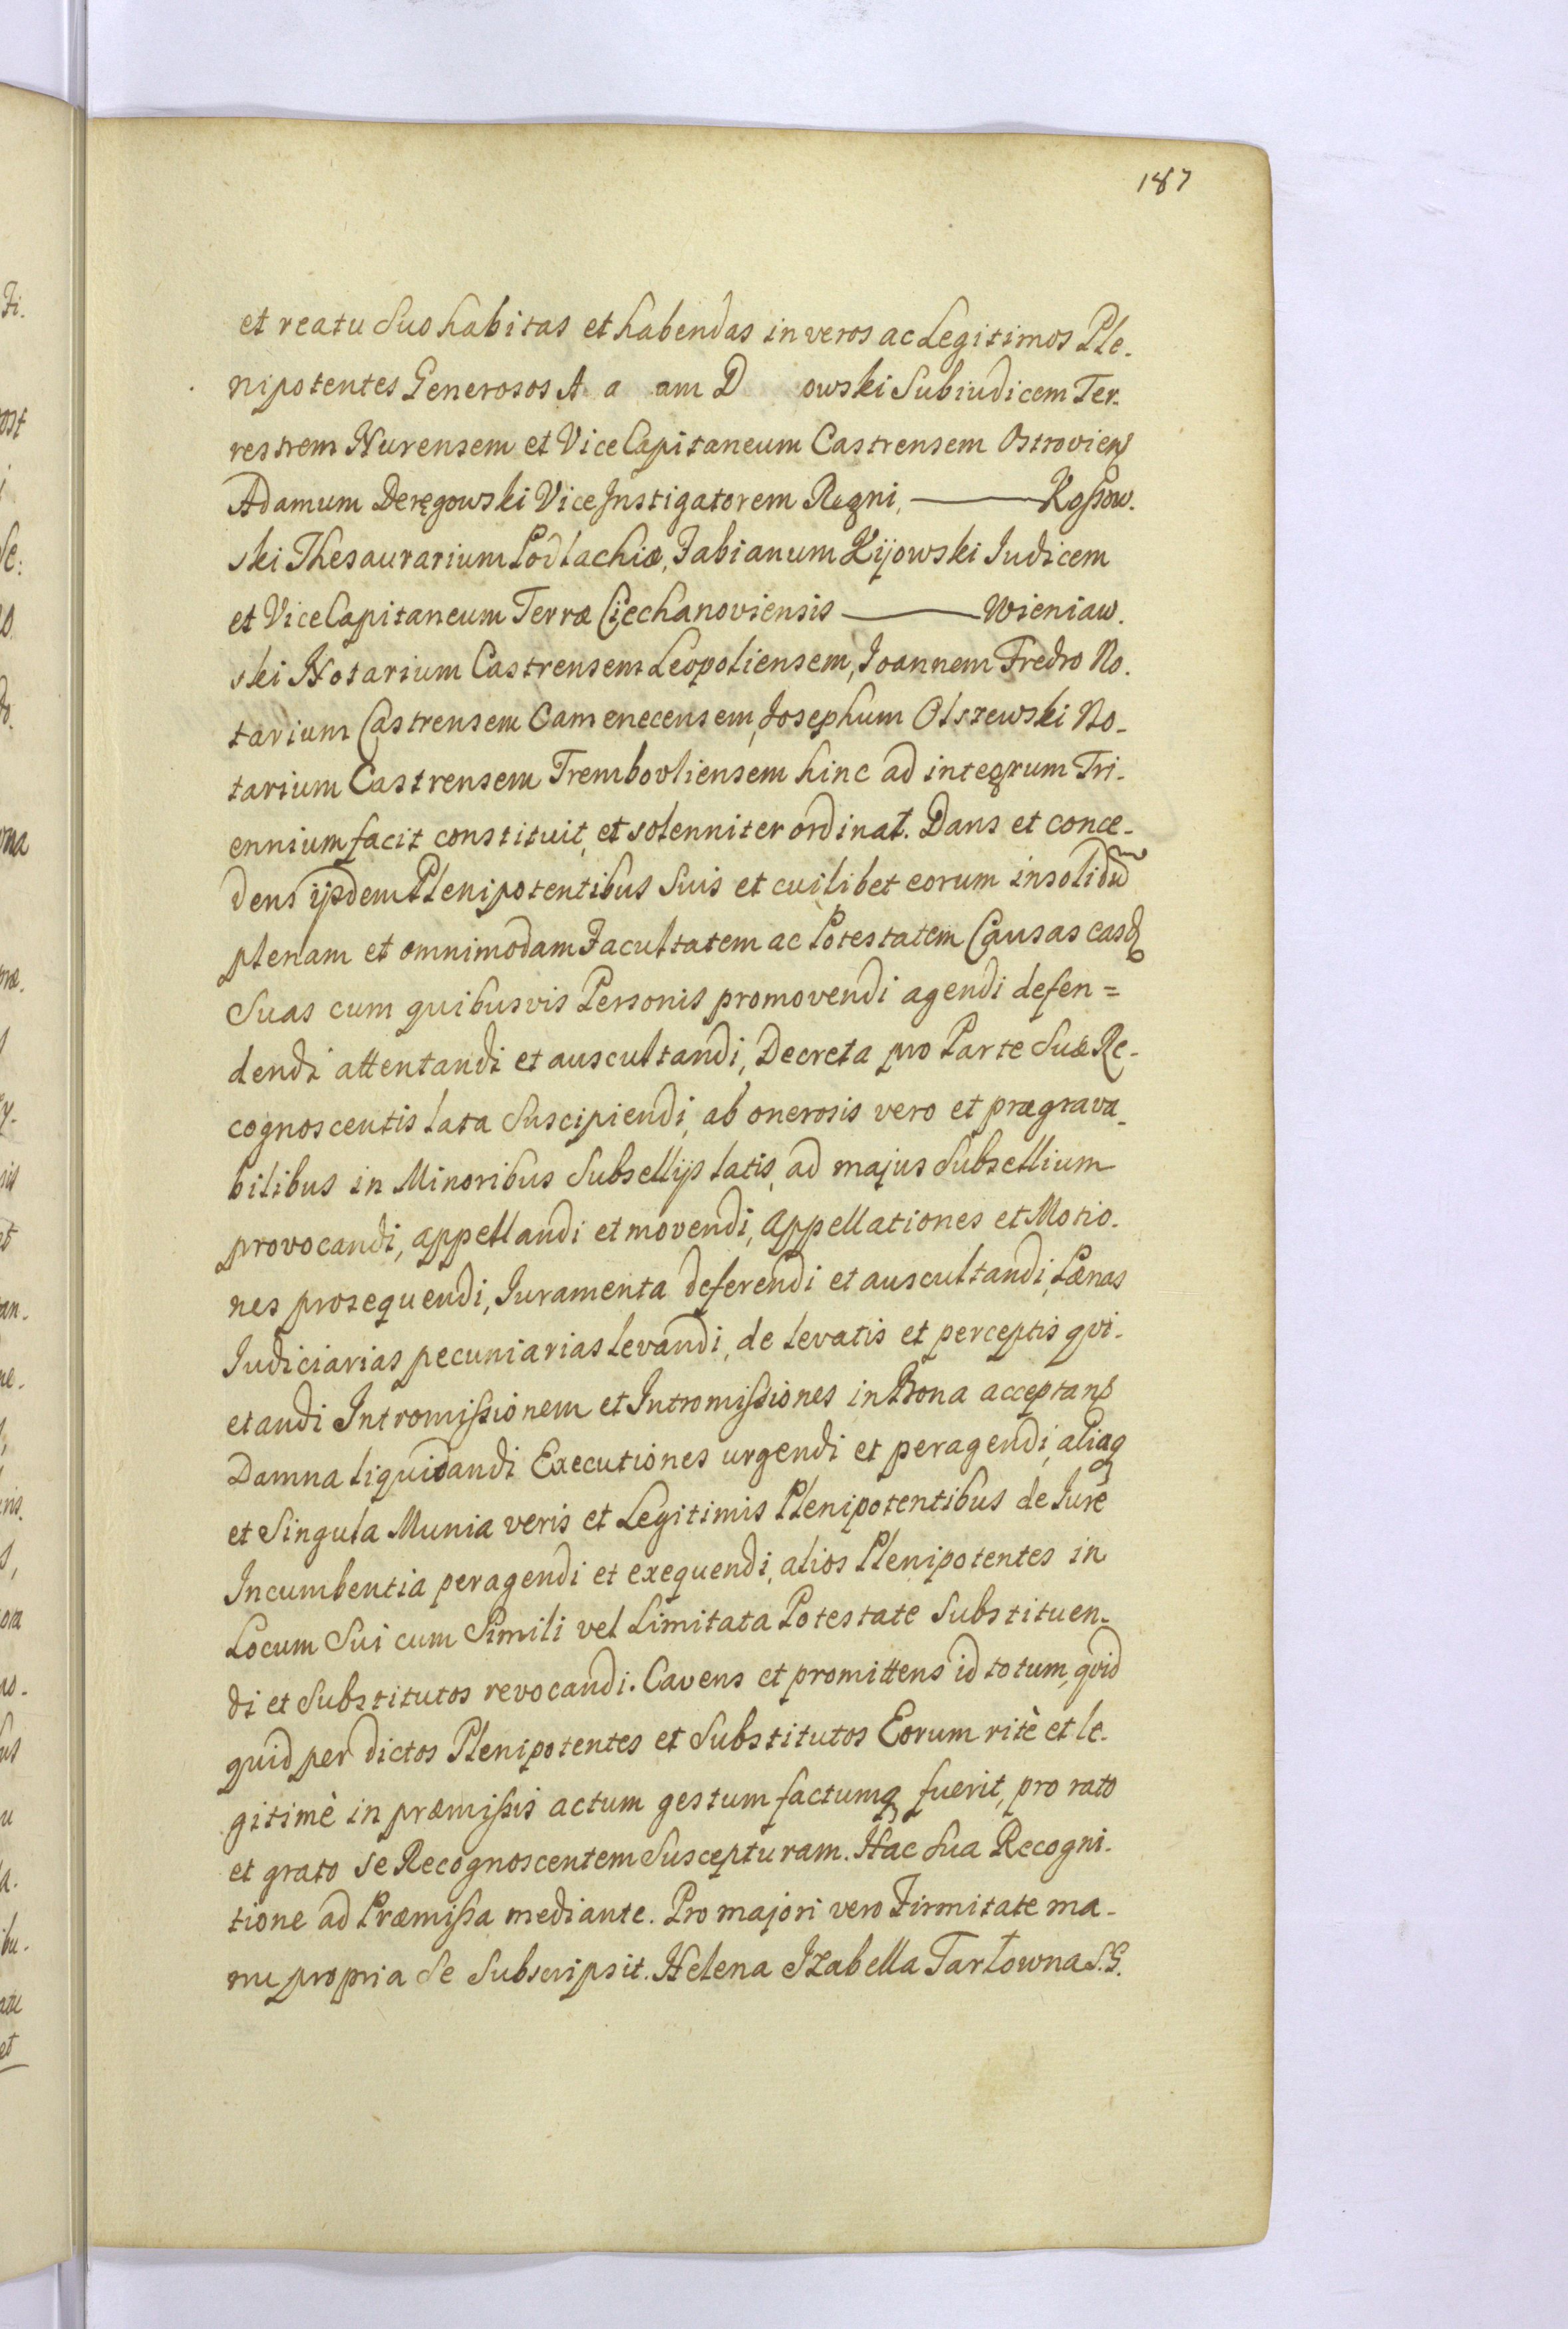 187
et reatu Suo habitas et habendas in veros ac Legitimos Ple.
nipotentes Generosos A a am D owski Subiudicem Ter.
restrem Nurensem et ViceCapitaneum Castrensem Ostroviens
Adamum Deręgowski ViceInstigatorem Regni, ——— Kossow.
ski Thesaurarium Podlachiæ, Fabianum Kijowski Iudicem
et ViceCapitaneum Terræ Ciechanoviensis ——— Wieniaw.
ski Notarium Castrensem Leopoliensem, Joannem Fredro No.
tarium Castrensem Camenecensem, Josephum Olszewski No_
tarium Castrensem Trembovliensem hinc ad integrum Tri_
ennium facit constituit, et solenniter ordinat. Dans et conce_
dens ijsdem Plenipotentibus Suis et cuilibet eorum insolidũ
plenam et omnimodam Facultatem ac Potestatem Causas casq
Suas cum quibusvis Personis promovendi agendi defen=
dendi attentandi et auscultandi, Decreta pro Parte Suæ Re_
cognoscentis lata Suscipiendi, ab onerosis vero et prægrava_
bilibus in Minoribus Subsellijs latis, ad majus Subsellium
provocandi, appellandi et movendi, Appellationes et Motio_
nes prosequendi, Iuramenta deferendi et auscultandi, Pænas
Iudiciarias pecuniarias levandi, de levatis et perceptis qvi_
etandi Intromissionem et Intromissiones in Bona acceptans
Damna liquidandi Executiones urgendi et peragendi, aliaq
et Singula Munia veris et Legitimis Plenipotentibus de Iure
Incumbentia peragendi et exequendi, alios Plenipotentes in
Locum Sui cum Simili vel Limitata Potestate Substituen_
di et Substitutos revocandi. Cavens et promittens id totum, qvid
quid per dictos Plenipotentes et Substitutos Eorum ritè et le_
gitimè in præmissis actum gestum factumq fuerit, pro rato
et grato se Recognoscentem Suscepturam. Hac Sua Recogni_
tione ad Præmissa mediante. Pro majori vero Firmitate ma_
nu propria Se Subscripsit. Helena Izabella Tarłowna S.G.